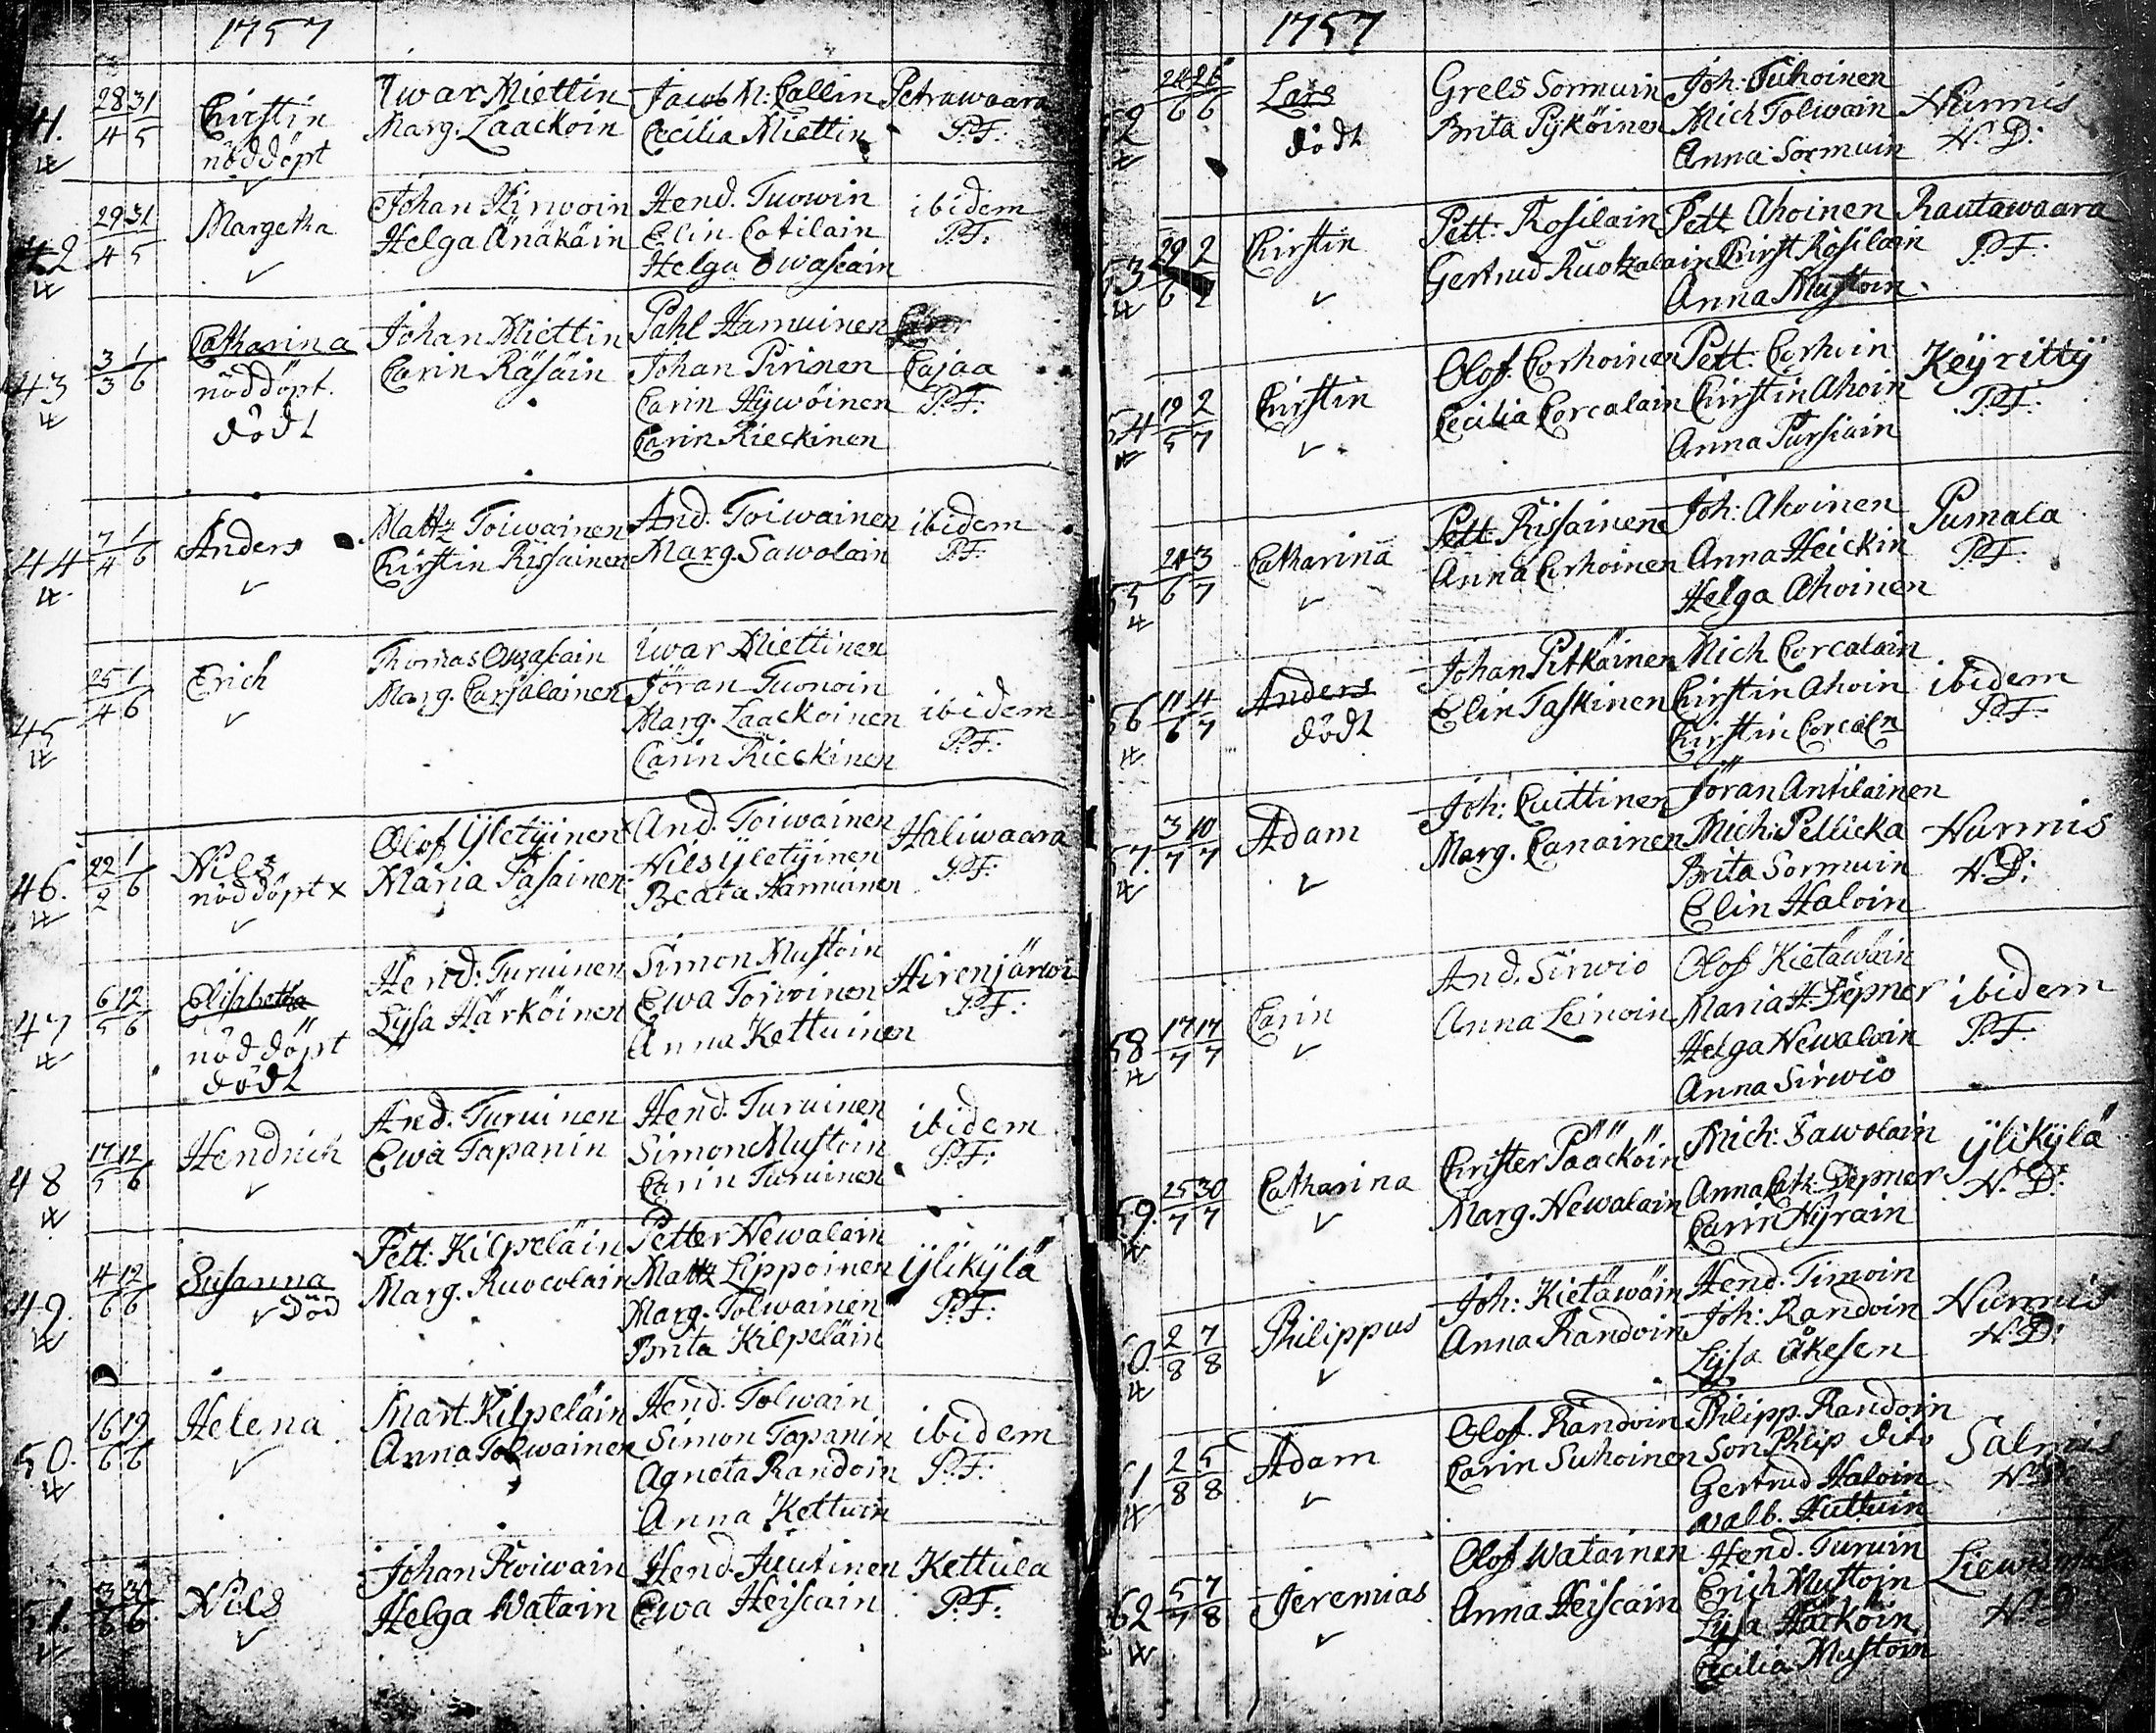 1757
41.
28/4 31/5
Chirstin
nöddöpt
Iwar Miettin
Marg. Laackoin
Jacob M: Callin
Cecilia Miettin
Petrawaara
P.F:
42
29/4 31/5
Margetha
Johan Hirwoin
Helga Änäkäin
Hend. Tuowin
Elin Cotilain
Helga Owascain
ibidem
P.F:
43
3/3 1/6
Catharina
nöddöpt.
dödt
Johan Miettin
Carin Räsäin
Pahl Hamuinen
Johan Pirinen
Carin Hywöinen
Carin Rieckinen
Cajaa
P.F:
44
7/4 1/6
Anders
Mattz Toiwainen
Chirstin Rissainen
And. Toiwainen
Marg. Sawolain
ibidem
P.F:
45
25/4 1/6
Erich
Thomas Owascain
Marg. Carjalainen
Iwar Miettinen
Jöran Tuonoin
Marg. Laackoinen
Carin Rieckinen
ibidem
P.F:
46.
22/2 1/6
Nils
nöddöpt x
Olof Ÿletyinen
Maria Pasainen
And. Toiwainen
Nils Ÿletyinen
Beata Hamuinen
Haliwaara
P.F:
47
6/5 12/6
Elisbetha
nöddöpt
dödt
Hend: Turuinen
Lysa Härköinen
Simon Mustoin
Ewa Toiwoinen
Anna Kettuinen
Hirenjärwi
P.F:
48
17/5 12/6
Hendrich
And. Turuinen
Ewa Tapanin
Hend. Turuinen
Simon Mustoin
Carin Turuinen
ibidem
P.F:
49.
4/6 12/6
Susanna
Död
Pett: Kilpeläin
Marg. Ruocolain
Petter Newalain
Mattz Lippoinen
Marg. Tolwainen
Brita Kilpeläin
Ÿlikylä
P.F:
50.
16/6 19/6
Helena
Mart. Kilpeläin
Anna Tolwainen
Hend. Tolwain
Simon Tapanin
Agneta Randoin
Anna Kettuin
ibidem
P.F:
51.
3/6 30/6
Nils
Johan Roiwain
Helga Watain
Hend. Juutinen
Ewa Heiscain
Kettula
P.F:
1757
52
24/6 26/6
Lars
dödt
Grels Sormuin
Brita Pyköinen
Joh: Tuhoinen
Mich Tolwain
Anna Sormuin
Nurmis
N. D:
53
29/6 2/7
Chirstin
Pett: Rosilain
Gertrud Ruotzalain
Pett Ahoinen
Chirst Rosilain
Anna Mustoin
Rautawaara
P.F:
54
19/5 2/7
Chirstin
Olof. Corhoinen
Cecilia Corcalain
Pett. Corhoin
Chirstin Ahoin
Anna Pursiain
Keyritty
P.F:
55
24/6 3/7
Catharina
Pett Rissainen
Anna Corhoinen
Joh: Ahoinen
Anna Heickin
Helga Ahoinen
Pumala
P.F:
56
11/6 4/7
Anders
dödt
Johan Pitkäinen
Elin Taskinen
Mich Corcalain
Chirstin Ahoin
Chirstin Corcaln
ibidem
P.F:
57.
3/7 10/7
Adam
Joh: Cuittinen
Marg. Canainen
Jöran Antilainen
Mich: Pellicka
Brita Sormuin
Elin Haloin
Nurmis
N.D:
58
17/7 17/7
Carin
And. Sirwio
Anna Leinoin
Olof Kietäwäin
Maria H. Depner
Helga Newalain
Anna Sirwio
ibidem
P.F:
59.
25/7 30/7
Catharina
Christer Pääcköin
Marg. Newalain
Mich: Sawolain
Anna Cath. Depner
Carin Nyrain
Ÿlikylä
N. D:
60.
2/8 7/8
Philippus
Joh: Kietäwäin
Anna Randoin
Hend. Timoin
Joh: Randoin
Lysa Åkesen
Nurmis
N. D:
61
2/8 5/8
Adam
Olof. Randoin
Carin Suhoinen
Philipp. Randoin
Son Philip dito
Gertrud Haloin
Walb. Huttuin
Salmis
62
5/7 7/8
Jeremias
Olof Watainen
Anna Heiscain
Hend. Turuin
Erich Mustoin
Lysa Härköin
Cecilia Mustoin